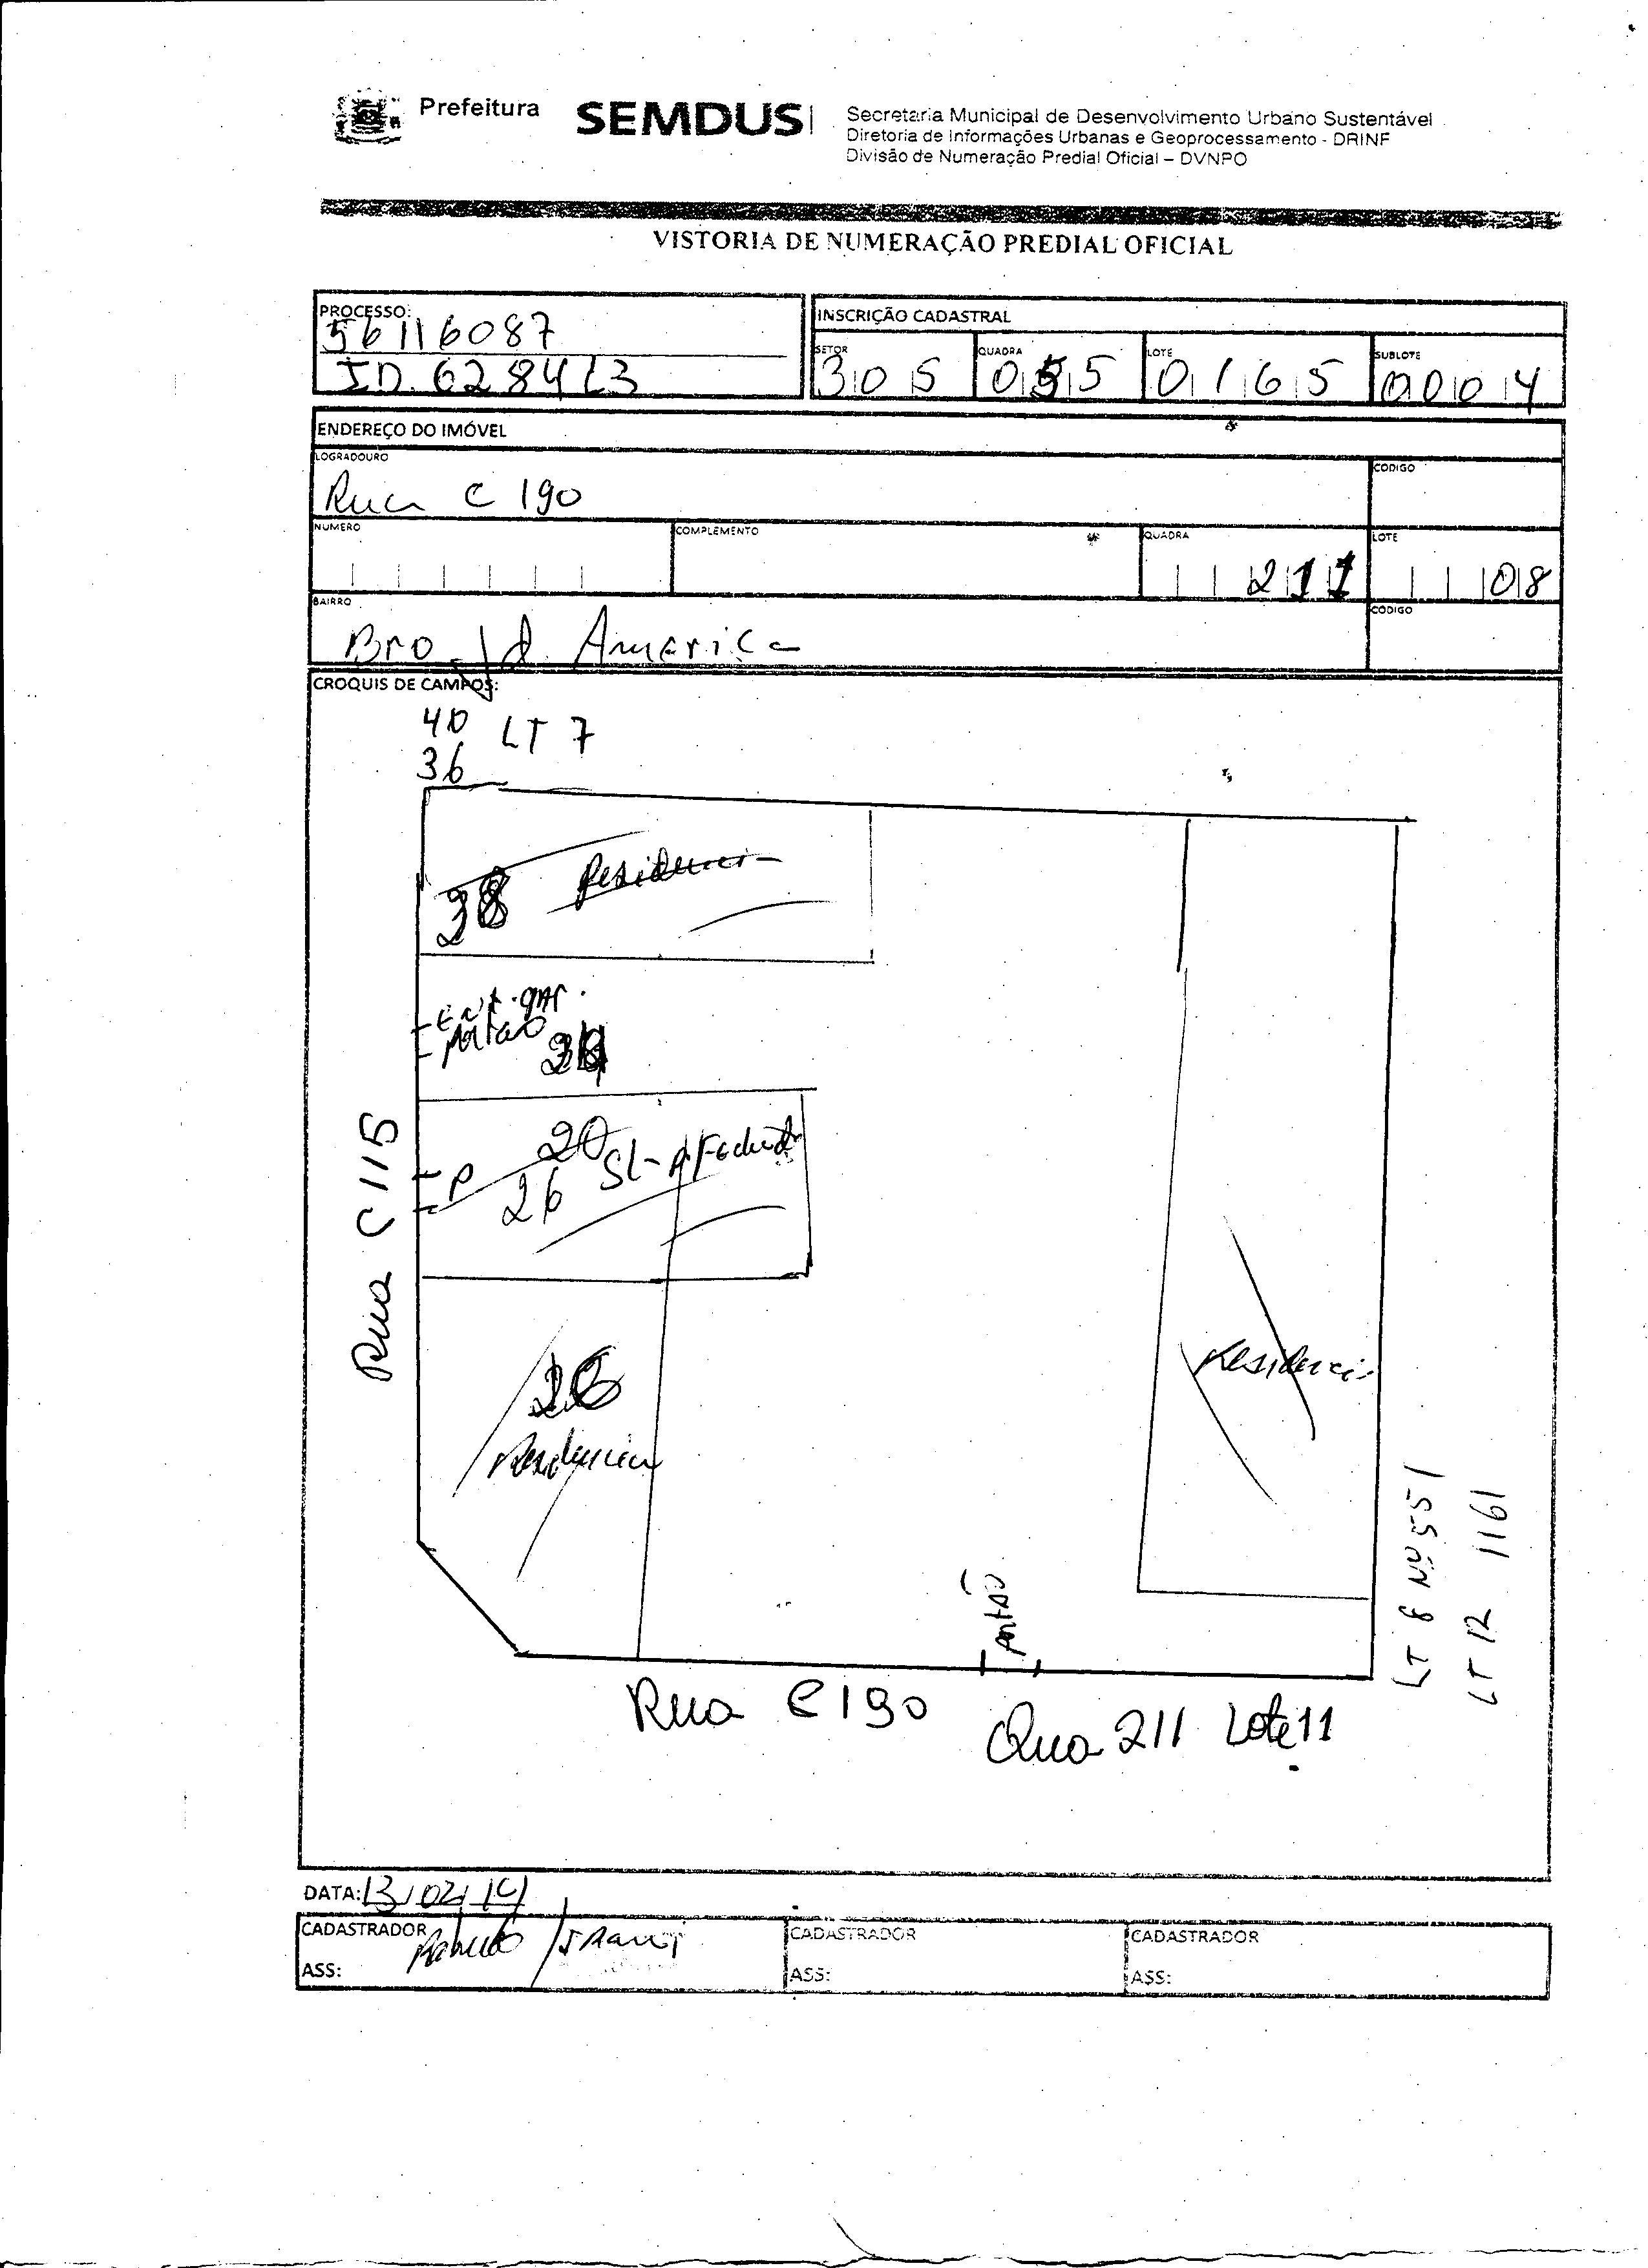 Prefeitura SEMDUS
Secretaria Municipal de Desenvolvimento Urbano Sustentável
Diretoria de Informações Urbanas e Geoprocessamento - DRINF
Divisão de Numeração Predial Oficial – DVNPO
VISTORIA DE NUMERAÇÃO PREDIAL OFICIAL
PROCESSO:
56116087
INSCRIÇÃO CADASTRAL
SETOR QUADRA LOTE SUBLOTE
305 055 0165 0004
ENDEREÇO DO IMÓVEL
LOGRADOURO CODIGO
Rua C 190
NUMERO COMPLEMENTO QUADRA LOTE
211 08
BAIRRO CODIGO
Bro Jd. America
CROQUIS DE CAMPOS:
40 LT 7
36
38
Portão
20
26 SL-
P
Rua C 115
26
Residencia
Residencia
portão
LT 8 Nº 551
LT 12 1161
Rua C190
Qua 211 Lote 11
DATA: 13/02/14
CADASTRADOR CADASTRADOR CADASTRADOR
ASS: ASS: ASS: